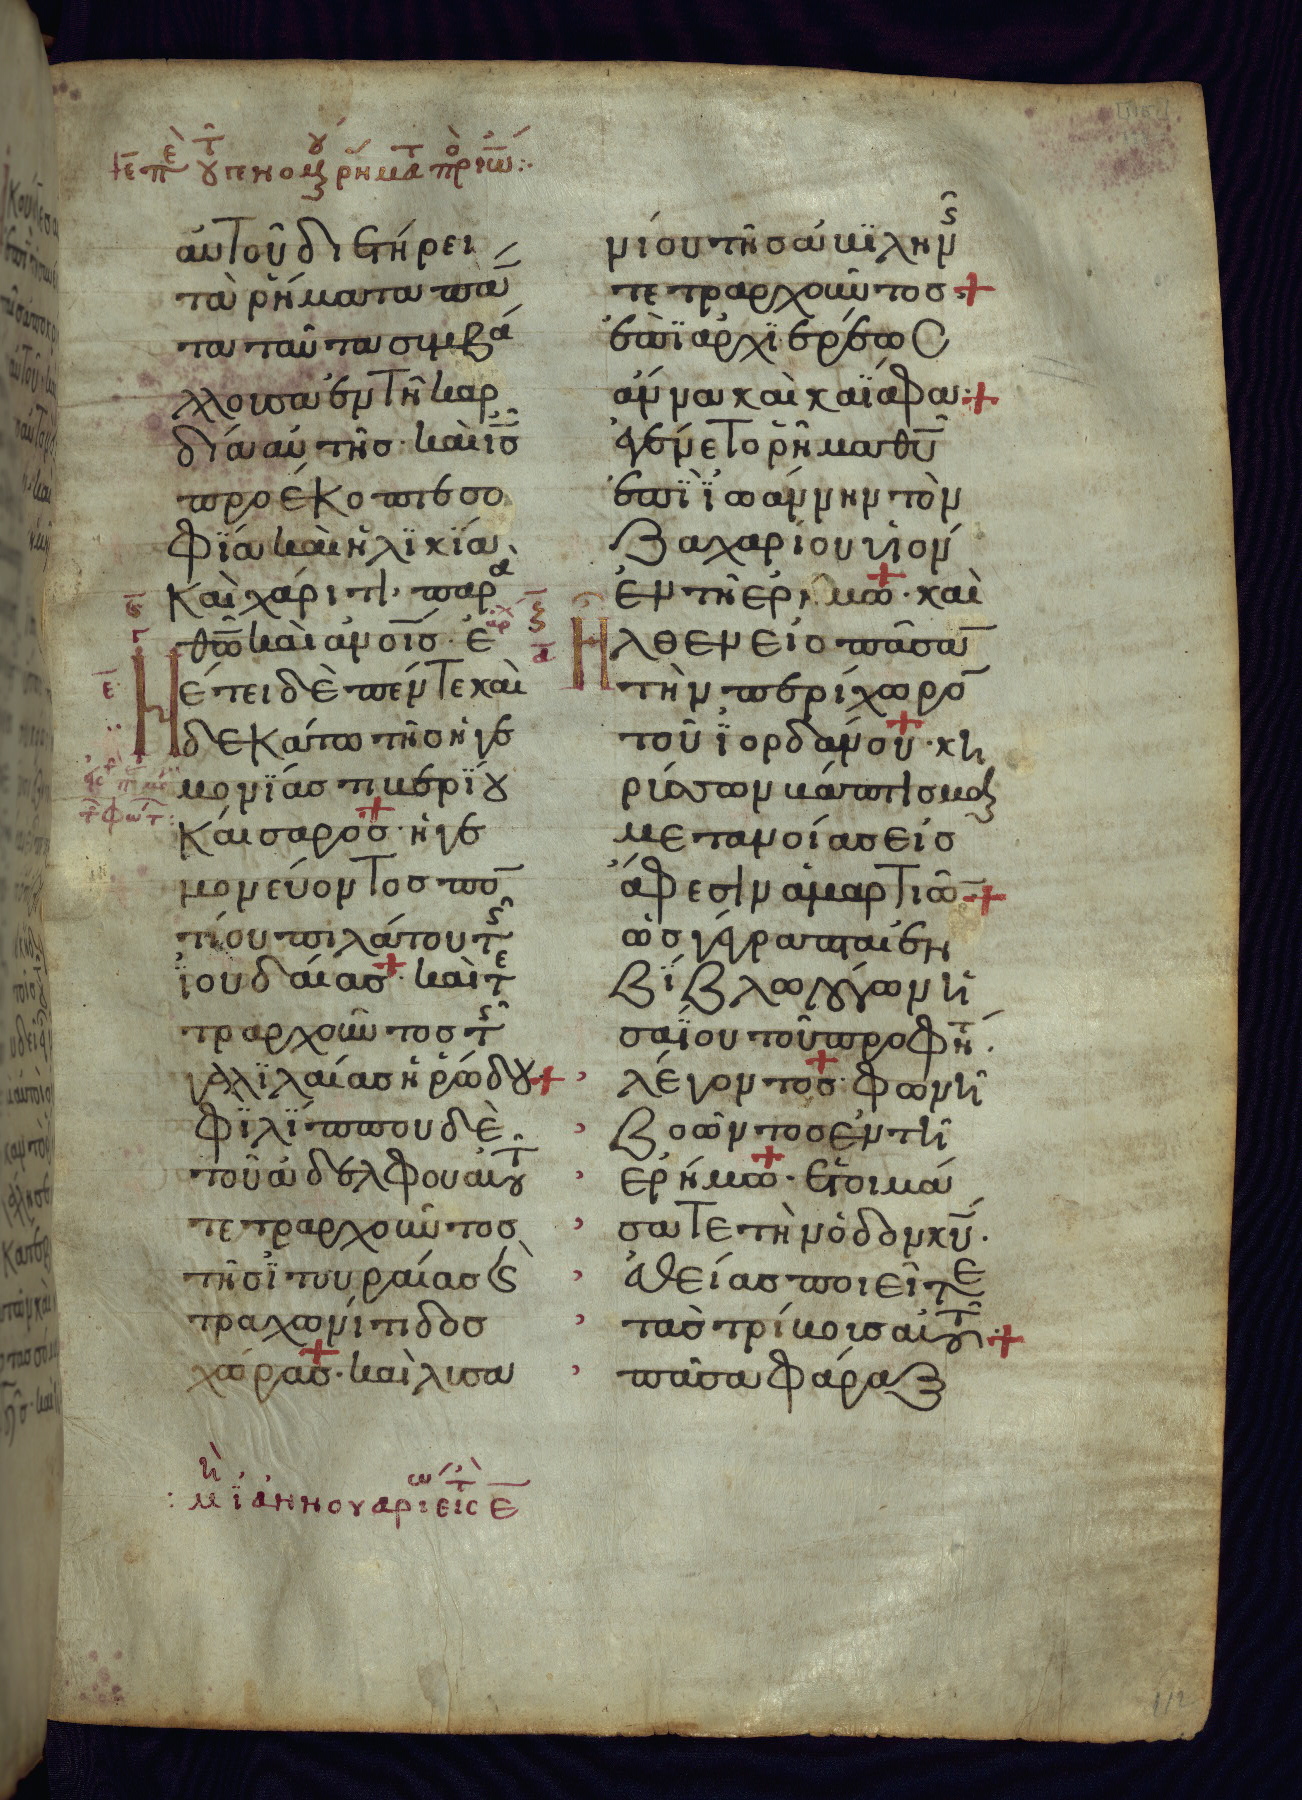 αὐτοῦ διετήρει
τὰ ῥήματα πά
τα ταῦτα συμβά
λλουσα ἐν τῆ καρ
δία αὐτῆσ· καὶ ισ
προέκοπτε σο
φϊα καὶ ἡλϊκϊα,
καὶ χάριτι· παρα
θω καὶ ανοισ· ἐ
Ἠ
έτει δὲ πέντε και
δεκάτω τῆσ ἡγε
μονϊασ τιβερϊου
καίσαροσ· ἡγε
μονεύοντοσ πο
τίου πιλάτου τῆς
ϊουδαίασ· καὶ τε
τραρχοῦντοσ τῆς
γαλϊλαίασ ἡρώδου
φϊλϊππου δὲ
τοῦ ἀδελφου αυτ
τετραρχοῦντοσ
τῆσ ϊτουραίασ ϛ
τραχωνίτιδοσ
χώρασ· καὶ λυσα
νίου τῆσ ἀβϊλην
τετραρχοῦντοσ
ἐπϊ αρχϊερέωσ
ἄννα καὶ καϊάφα·
ἐγένετο ῥῆμα θυ
ἐπϊ ϊωάννην τὸν
ζαχαρίου υἱον
ἐν τῆ ἐρήμω· καὶ
Ἠλθεν εἰσ πᾶσα
τὴν περίχωρο
τοῦ ϊορδάνου· κη
ρύσσων βάπτισμα
μετανοίασ εἰσ
ἄφεσιν ἁμαρτιω
ὡσ γέγραπται ἐν
βϊβλω λόγων ἡ
σαϊου τοῦ προφητ
λέγοντοσ· φωνὴ
βοῶντοσ ἐν τῆ
ερήμω· ἑτοιμά
σατε τὴν ὁδον κυ·
εὐθείασ ποιεῖτε
τὰσ τρίβουσ αυτ
πᾶσα φάραξ
μη ϊαννουαρι εισ